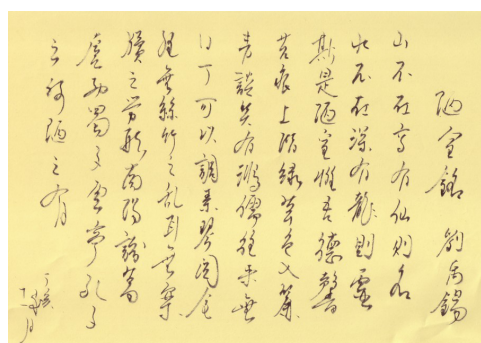 陋室銘 劉禹錫
山不在高有仙則名
水不在深有龍則靈
斯是陋室惟吾德馨
苔痕上階綠草色入簾
青談笑有鴻儒往來無
白丁可以調素琴閱金
經無絲竹之亂耳無案
牘之勞形南陽諸葛
廬西蜀子雲亭孔子
云何陋之有
丁亥